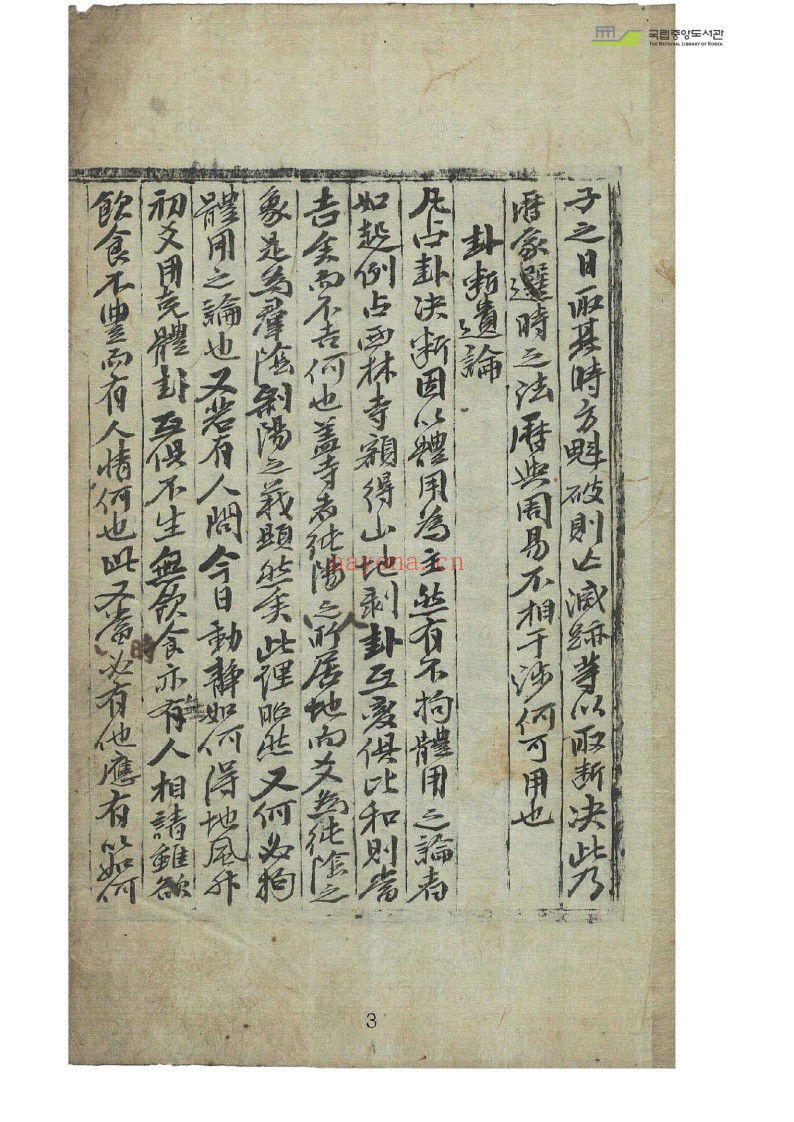 국립중앙도서관
THE NATIONAL LIBRARY OF KOREA
子之日取其時方魁破則亡滅跡等以取断决此乃
曆家選時之法曆与周易不相干涉何可用也
卦断遺論
凡占卦决断固以體用為主然有不拘體用之論者
如起例占西林寺額得山地剥卦互変俱比和則當
吉矣而不吉何也盖寺者純陽人之所居地而爻為純陰之
象是為羣陰剥陽之義顕然矣此理昭然又何必拘
體用之論也又若有人問今日動静如何得地風升
初爻用克體卦互俱不生無飲食亦有人相請雖飲
飲食不豊而有人情何也此又當時必有他應有以如何
hayona.cn
3